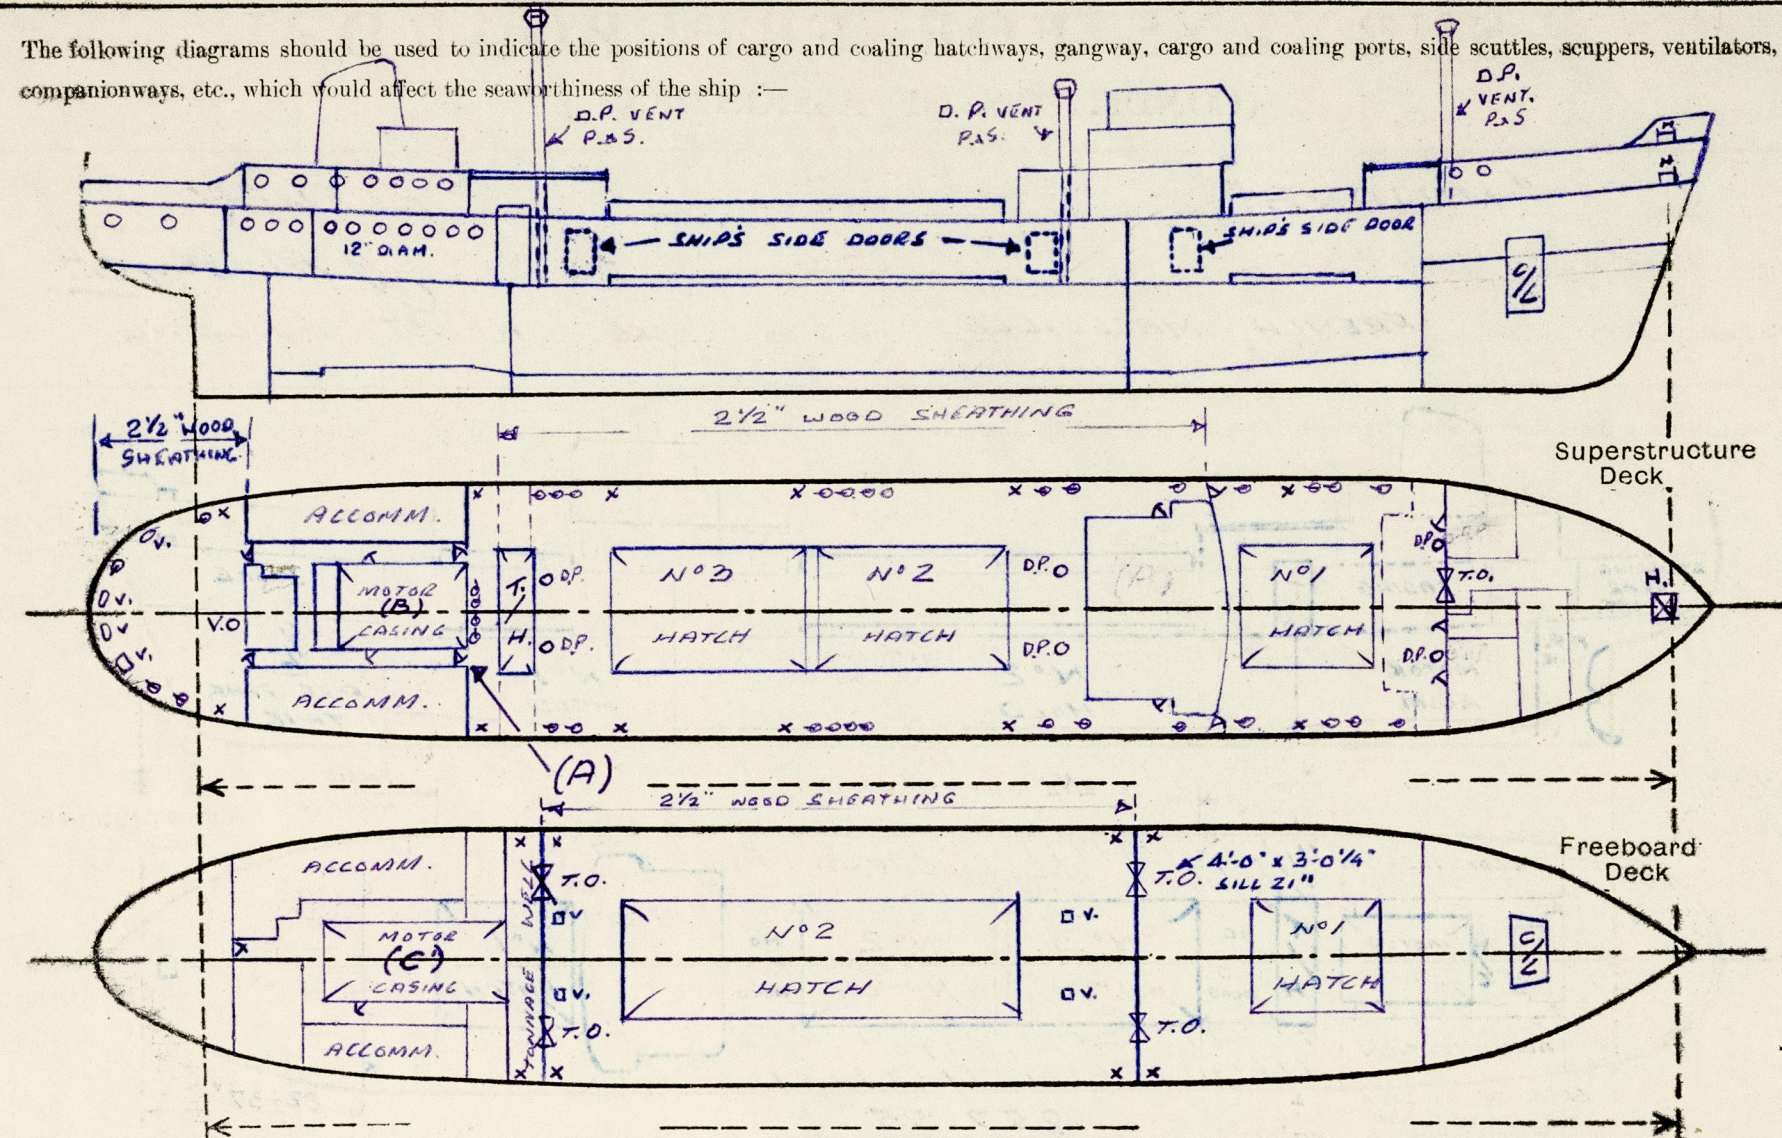 The following diagrams should be used to indicate the positions of cargo and coaling hatchways, gangway, cargo and coaling ports, side scuttles, scuppers, ventilators,
companionways, etc., which would affect the seaworthiness of the ship :—
D.P. VENT
P.&S.
D.P. VENT
P.&S.
D.P.
VENT.
P.&S
12" DIAM.
SHIP'S SIDE DOORS
SHIP'S SIDE DOOR
2½" WOOD
SHEATHING
2½" WOOD SHEATHING
Superstructure
Deck
ACCOMM.
V.
V.
V
V.
V.O
MOTOR
(B)
CASING
T.
/
H.
D.P.
D.P.
Nº3
HATCH
Nº2
HATCH
D.P.O
D.P.O
Nº1
HATCH
D.P.O
T.O.
D.P.O
H.
ACCOMM.
(A)
2½" WOOD SHEATHING
Freeboard
Deck
ACCOMM.
MOTOR
(C)
CASING
ACCOMM.
TONNAGE WELL
T.O.
V
V.
T.O.
Nº2
HATCH
V.
V.
T.O.
4'-0" x 3'-0¼"
SILL 21"
T.O.
Nº1
HATCH